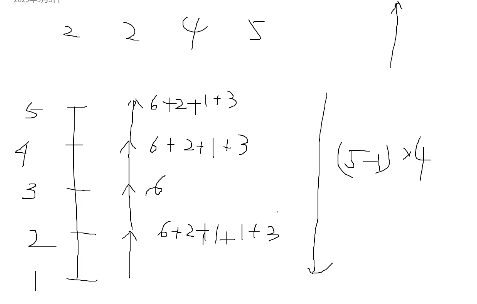 2 2 4 5
5 6+2+1+3
4 6+2+1+3
(5-1)×4
3 6
2 6+2+1+1+3
1